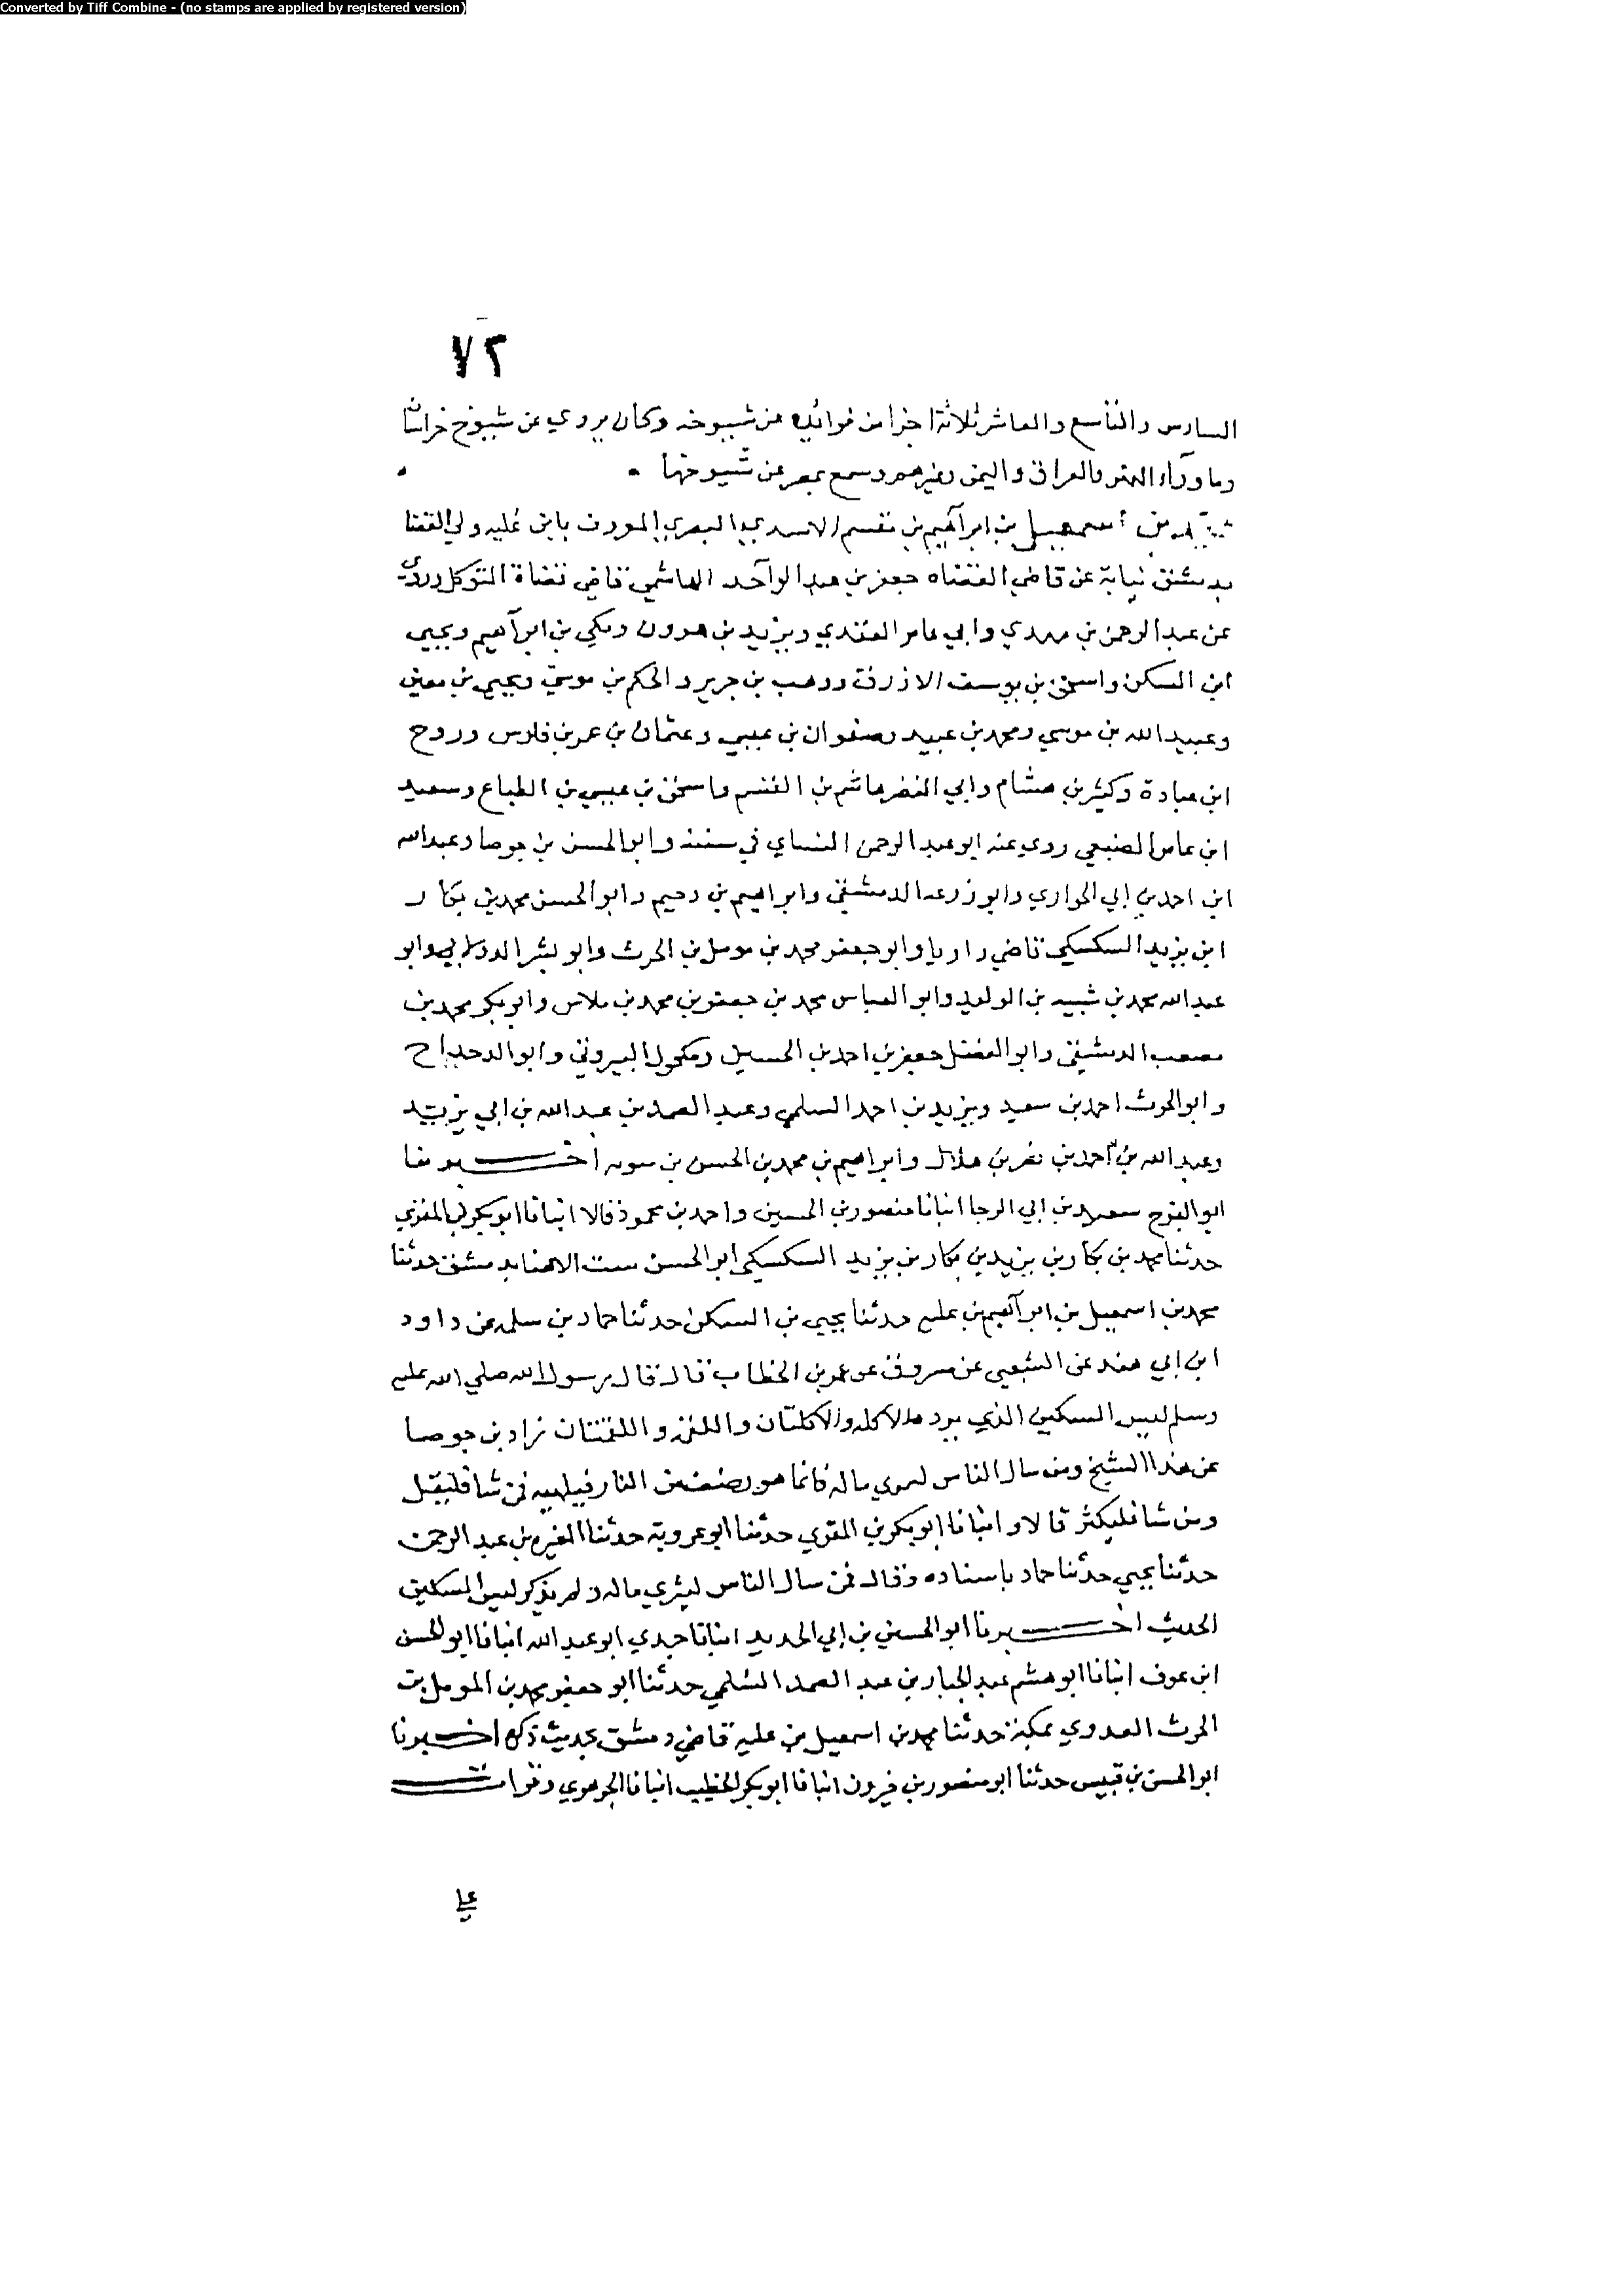 Converted by Tiff Combine - (no stamps are applied by registered version)
٧٢
السادس والتاسع والعاشر ثلاثة اجزا من فوائده عن شيوخه وكان يروي عن شيوخ خراسان
وما ورآء النهر والعراق واليمن وغيرهم وسمع بمصر عن شيوخها
محمد بن اسمعيل بن ابرآهيم بن مقسم الاسدي البصري المعروف بابن علية ولي القضا
بدمشق نيابة عن قاضي القضاه جعفر بن عبد الوآحد الهاشمي قاضي قضاة المتوكل وروى
عن عبد الرحمن بن مهدي وابي عامر العقدي ويزيد بن هرون ومكي بن ابرآهيم ويحيى
ابن السكن واسحق بن يوسف الازرق ووهب بن جرير والحكم بن موسى ويحيى بن معين
وعبيد الله بن موسي ومحمد بن عبيد وصفوان بن عيسي وعثمان بن عمر بن فارس وروح
ابن عبادة وكثير بن هشام وابي النضر هاشم بن القسم واسحق بن عيسي بن الطباع وسعيد
ابن عامر الضبعي روى عنه ابو عبد الرحمن النساي في سننه وابو الحسن بن جوصا وعبد الله
ابن احمد بن ابي الحواري وابو زرعه الدمشقي وابراهيم بن دحيم وابو الحسن محمد بن بكار
ابن يزيد السكسكي قاضي داريا وابو جعفر محمد بن مومل بن الحرث وابو بشر الدولابي وابو
عبد الله محمد بن شيبه بن الوليد وابو العباس محمد بن جعفر بن محمد بن ملاس وابو بكر محمد بن
مصعب الدمشقي وابو الفضل جعفر بن احمد بن الحسين ومكحول البيروتي وابو الدحداح
وابو الحرث احمد بن سعيد ويزيد بن احمد السلمي وعبد الصمد بن عبد الله بن ابي يزيد
وعبد الله بن احمد بن نصر بن هلال وابراهيم بن محمد بن الحسن بن متويه اخبرنا
ابو الفرج سعيد بن ابي الرجا انبانا منصور بن الحسين واحمد بن محمود قالا انبانا ابو بكر بن المقري
حدثنا محمد بن بكار بن يزيد بن بكار بن يزيد السكسكي ابو الحسن ببيت الاهيا بدمشق حدثنا
محمد بن اسمعيل بن ابرآهيم بن علية حدثنا يحيى بن السكن حدثنا حماد بن سلمه عن داود
ابن ابي هند عن الشعبي عن مسروق عن عمر بن الخطاب قال قال رسول الله صلي الله عليه
وسلم ليس المسكين الذي يرده الاكله والاكلتان واللقمة واللقمتان زاد بن جوصا
عن هذا الشيخ ومن سال الناس ليثري ماله فانما هو رضف من النار فيلهبه فمن شا فليقل
ومن شا فليكثر قالا وانبانا ابو بكر بن المقري حدثنا ابو عروبة حدثنا المغيره بن عبد الرحمن
حدثنا يحيي حدثنا حماد باسناده وقال فمن سال الناس ليثري ماله ولم يذكر ليس المسكين
الحديث اخبرنا ابو الحسين بن ابي الحديد انبانا جدي ابو عبد الله انبانا ابو الحسن
ابن عوف انبانا ابو هشم عبد الجبار بن عبد الصمد السلمي حدثنا ابو جعفر محمد بن المومل بن
الحرث العدوي بمكة حدثنا محمد بن اسمعيل بن علية قاضي دمشق بحديث ذكره اخبرنا
ابو الحسن بن قبيس حدثنا ابو منصور بن خيرون انبانا ابو بكر الخطيب انبانا الجوهري وقرات
علي